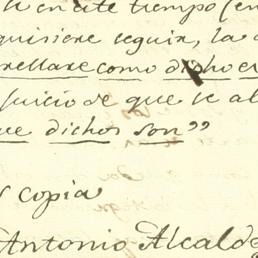 en este tiempo (en
quisiere seguir, la
rellare como dicho es
juicio de que se al
ue dichos son"
s copia
Antonio Alcalde